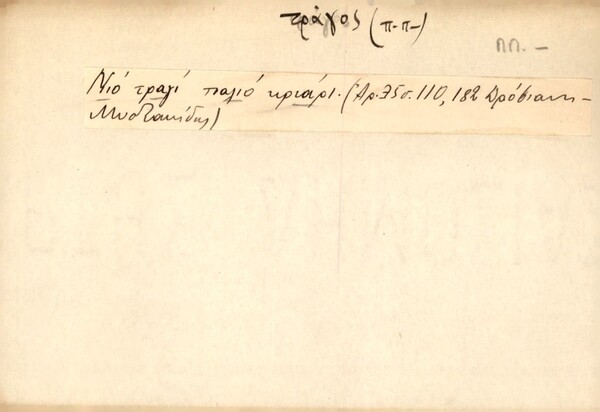 τράγος (π-π-)
ΠΠ. -
Νιό τραγί παλιό κριάρι. (Αρ. 35 σ. 110, 182 Δρόβιανη -
Μυστακίδης)